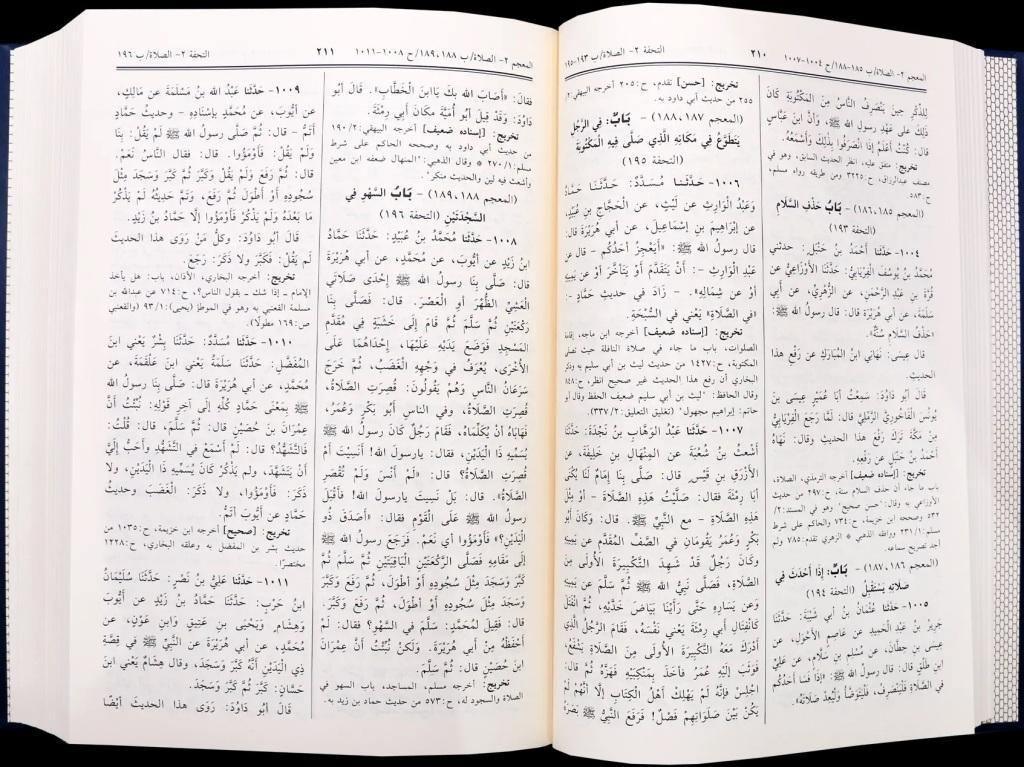 المعجم ٢- الصلاة/ ب ١٨٥-١٨٨/ ح ١٠٠٤-١٠٠٧
٢١٠
التحفة ٢- الصلاة/ ب ١٩٣-١٩٥
لِلذِّكْرِ حِينَ يَنْصَرِفُ النَّاسُ مِنَ المَكْتُوبَةِ كَانَ
ذَلِكَ عَلَى عَهْدِ رسولِ الله ﷺ، وَأنَّ ابنَ عَبَّاسٍ
قال: كُنْتُ أعْلَمُ إذَا انْصَرَفُوا بِذَلِكَ وَأسْمَعُهُ.
تخريج: متفق عليه، انظر الحديث السابق، وهو في
مصنف عبدالرزاق، ح: ٣٢٢٥ ومن طريقه رواه مسلم،
ح: ٥٨٣.
(المعجم ١٨٥، ١٨٦) - بَابُ حَذْفِ السَّلَامِ
(التحفة ١٩٣)
١٠٠٤- حَدَّثَنا أحْمَدُ بنُ حَنْبَلٍ: حدثني
مُحمَّدُ بنُ يُوسُفَ الْفِرْيَابِيُّ: حَدَّثَنَا الأوْزَاعِيُّ عن
قُرَّةَ بنِ عَبْدِ الرَّحْمَنِ، عن الزُّهْرِيِّ، عن أبي
سَلَمَةَ، عن أبي هُرَيْرَةَ قال: قال رسولُ الله ﷺ:
«حَذْفُ السَّلَامِ سُنَّةٌ».
قال عِيسَى: نَهَانِي ابنُ المُبَارَكِ عن رَفْعِ هذا
الحديثِ.
قال أبُو دَاوُدَ: سَمِعْتُ أبَا عُمَيْرٍ عِيسَى بنَ
يُونُسَ الْفَاخُورِيَّ الرَّمْلِيَّ قال: لَمَّا رَجَعَ الْفِرْيَابِيُّ
مِنْ مَكَّةَ تَرَكَ رَفْعَ هذا الحديثِ وقال: نَهَاهُ
أحْمَدُ بنُ حَنْبَلٍ عن رَفْعِهِ.
تخريج: [إسناده ضعيف] أخرجه الترمذي، الصلاة،
باب ما جاء أن حذف السلام سنة، ح: ٢٩٧ من حديث
الأوزاعي به وقال: "حسن صحيح" وهو في المسند: ٢/
٥٣٢ وصححه ابن خزيمة، ح: ٧٣٤ والحاكم على شرط
مسلم: ١/ ٢٣١ ووافقه الذهبي * الزهري تقدم: ٧٨٥ ولم
أجد تصريح سماعه.
(المعجم ١٨٦، ١٨٧) - بَابٌ: إذَا أحْدَثَ فِي
صَلَاتِهِ يَسْتَقْبِلُ (التحفة ١٩٤)
١٠٠٥- حَدَّثَنا عُثْمَانُ بنُ أبي شَيْبَةَ: حَدَّثَنَا
جَرِيرُ بنُ عَبْدِ الْحَمِيدِ عن عَاصِمٍ الأحْوَلِ، عن
عِيسَى بنِ حِطَّانَ، عن مُسْلِمِ بنِ سلَّامٍ، عن عَلِيِّ
ابنِ طَلْقٍ قال: قال رسولُ الله ﷺ: «إذَا فَسَا أحَدُكُم
في الصَّلَاةِ فَلْيَنْصَرِفْ، فَلْيَتَوَضَّأْ وَلْيُعِدْ صَلَاتَهُ».
تخريج: [حسن] تقدم، ح: ٢٠٥ أخرجه البيهقي: ٢/
٢٥٥ من حديث أبي داود به.
(المعجم ١٨٧، ١٨٨) - بَابٌ: فِي الرَّجُلِ
يَتَطَوَّعُ فِي مَكَانِهِ الَّذِي صَلَّى فِيهِ الْمَكْتُوبَةَ
(التحفة ١٩٥)
١٠٠٦- حَدَّثَنا مُسَدَّدٌ: حَدَّثَنَا حَمَّادٌ
وَعَبْدُ الْوَارِثِ عن لَيْثٍ، عن الْحَجَّاجِ بنِ عُبَيْدٍ،
عن إبْرَاهِيمَ بنِ إسْمَاعِيلَ، عن أبي هُرَيْرَةَ قال:
قال رسولُ الله ﷺ: «أيَعْجِزُ أحَدُكُم - قال عن
عَبْدِ الْوَارِثِ -: أنْ يَتَقَدَّمَ أوْ يَتَأخَّرَ أوْ عن يَمِينِهِ
أوْ عن شِمَالِهِ». - زَادَ في حديثِ حَمَّادٍ -:
«في الصَّلَاةِ» يَعْني في السُّبْحَةِ.
تخريج: [إسناده ضعيف] أخرجه ابن ماجه، إقامة
الصلوات، باب ما جاء في صلاة النافلة حيث تصلى
المكتوبة، ح: ١٤٢٧ من حديث ليث بن أبي سليم به وذكر
البخاري أن رفع هذا الحديث غير صحيح انظر، ح: ٨٤٨
وقال الحافظ: "ليث بن أبي سليم ضعيف الحفظ وقال أبو
حاتم: إبراهيم مجهول" (تغليق التعليق: ٢/ ٣٣٧).
١٠٠٧- حَدَّثَنا عَبْدُ الْوَهَّابِ بنُ نَجْدَةَ: حَدَّثَنَا
أشْعَثُ بنُ شُعْبَةَ عن المِنْهَالِ بنِ خَلِيفَةَ، عن
الأزْرَقِ بنِ قَيْسٍ قال: صَلَّى بِنَا إمَامٌ لَنَا يُكْنَى
أبَا رِمْثَةَ فقال: صَلَّيْتُ هَذِهِ الصَّلَاةَ - أوْ مِثْلَ
هَذِهِ الصَّلَاةِ - مع النَّبيِّ ﷺ. قال: وَكَانَ أبُو
بَكْرٍ وَعُمَرُ يَقُومَانِ في الصَّفِّ المُقَدَّمِ عن يَمِينِهِ
وَكَانَ رَجُلٌ قَدْ شَهِدَ التَّكْبِيرَةَ الأُولَى مِنَ
الصَّلَاةِ، فَصَلَّى نَبِيُّ الله ﷺ ثُمَّ سَلَّمَ عن يَمِينِهِ
وَعن يَسَارِهِ حَتَّى رَأيْنَا بَيَاضَ خَدَّيْهِ، ثُمَّ انْفَتَلَ
كَانْفِتَالِ أبي رِمْثَةَ يَعْني نَفْسَهُ، فَقَامَ الرَّجُلُ الَّذِي
أدْرَكَ مَعَهُ التَّكْبِيرَةَ الأُولَى مِنَ الصَّلَاةِ يَشْفَعُ،
فَوَثَبَ إلَيْهِ عُمَرُ فَأخَذَ بِمَنْكِبَيْهِ فَهَزَّهُ ثُمَّ قال:
اجْلِسْ فإنَّهُ لَمْ يَهْلِكْ أهْلُ الْكِتَابِ إلَّا أنَّهُمْ لَمْ
يَكُنْ بَيْنَ صَلَوَاتِهِمْ فَصْلٌ! فَرَفَعَ النَّبِيُّ ﷺ بَصَرَهُ
المعجم ٢- الصلاة/ ب ١٨٨، ١٨٩/ ح ١٠٠٨-١٠١١
٢١١
التحفة ٢- الصلاة/ ب ١٩٦
فقال: «أصَابَ الله بكَ يَاابنَ الْخَطَّابِ». قال أبُو
دَاوُدَ: وَقَدْ قِيلَ أبُو أُمَيَّةَ مَكَانَ أبي رِمْثَةَ.
تخريج: [إسناده ضعيف] أخرجه البيهقي: ٢/ ١٩٠
من حديث أبي داود به وصححه الحاكم على شرط
مسلم: ١/ ٢٧٠ * وقال الذهبي: "المنهال ضعفه ابن معين
وأشعث فيه لين والحديث منكر".
(المعجم ١٨٨، ١٨٩) - بَابُ السَّهْوِ فِي
السَّجْدَتَيْنِ (التحفة ١٩٦)
١٠٠٨- حَدَّثَنا مُحَمَّدُ بنُ عُبَيْدٍ: حَدَّثَنَا حَمَّادُ
ابنُ زَيْدٍ عن أيُّوبَ، عن مُحَمَّدٍ، عن أبي هُرَيْرَةَ
قال: صَلَّى بِنَا رسولُ الله ﷺ إحْدَى صَلَاتَيِ
الْعَشِيِّ الظُّهْرَ أو الْعَصْرَ. قال: فَصَلَّى بِنَا
رَكْعَتَيْنِ ثُمَّ سَلَّمَ ثُمَّ قَامَ إلَى خَشَبَةٍ في مُقَدَّمِ
المَسْجِدِ فَوَضَعَ يَدَيْهِ عَلَيْهَا، إحْدَاهُمَا عَلَى
الأُخْرَى، يُعْرَفُ في وَجْهِهِ الْغَضَبُ، ثُمَّ خَرَجَ
سَرَعَانُ النَّاسِ وَهُمْ يَقُولُونَ: قُصِرَتِ الصَّلَاةُ،
قُصِرَتِ الصَّلَاةُ، وفي النَّاسِ أبُو بَكْرٍ وَعُمَرُ،
فَهَابَاهُ أنْ يُكَلِّمَاهُ، فَقَامَ رَجُلٌ كَانَ رسولُ الله ﷺ
يُسَمِّيهِ ذَا الْيَدَيْنِ، فقال: يارسولَ الله! أنَسِيتَ أمْ
قُصِرَتِ الصَّلَاةُ؟ قال: «لَمْ أنْسَ وَلَمْ تُقْصَرِ
الصَّلَاةُ». قال: بَلْ نَسِيتَ يارسولَ الله! فأقْبَلَ
رسولُ الله ﷺ عَلَى الْقَوْمِ فقال: «أصَدَقَ ذُو
الْيَدَيْنِ؟» فَأوْمَؤُوا أي نَعَمْ. فَرَجَعَ رسولُ الله ﷺ
إلَى مَقَامِهِ فَصَلَّى الرَّكْعَتَيْنِ الْبَاقِيَتَيْنِ ثُمَّ سَلَّمَ ثُمَّ
كَبَّرَ وَسَجَدَ مِثْلَ سُجُودِهِ أوْ أطْوَلَ، ثُمَّ رَفَعَ وَكَبَّرَ
وَسَجَدَ مِثْلَ سُجُودِهِ أوْ أطْوَلَ، ثُمَّ رَفَعَ وَكَبَّرَ.
قال: فَقِيلَ لِمُحمَّدٍ: سَلَّمَ في السَّهْوِ؟ فقال: لَمْ
أحْفَظْهُ مِنْ أبي هُرَيْرَةَ. وَلَكِنْ نُبِّئْتُ أنَّ عِمْرَانَ
ابنَ حُصَيْنٍ قال: ثُمَّ سَلَّمَ.
تخريج: أخرجه مسلم، المساجد، باب السهو في
الصلاة والسجود له، ح: ٥٧٣ من حديث حماد بن زيد به.
١٠٠٩- حَدَّثَنا عَبْدُ الله بنُ مَسْلَمَةَ عن مَالِكٍ،
عن أيُّوبَ، عن مُحمَّدٍ بِإسْنَادِهِ - وحديثُ حَمَّادٍ
أتَمُّ - قال: ثُمَّ صَلَّى رسولُ الله ﷺ لَمْ يَقُلْ: بِنَا
وَلَمْ يَقُلْ: فَأوْمَؤُوا. قال: فقال النَّاسُ نَعَمْ.
قال: ثُمَّ رَفَعَ وَلَمْ يَقُلْ وَكَبَّرَ ثُمَّ كَبَّرَ وَسَجَدَ مِثْلَ
سُجُودِهِ أوْ أطْوَلَ ثُمَّ رَفَعَ، وَتَمَّ حديثُهُ لَمْ يَذْكُرْ
مَا بَعْدَهُ وَلَمْ يَذْكُرْ فَأوْمَؤُوا إلَّا حَمَّادُ بنُ زَيْدٍ.
قال أبُو دَاوُدَ: وَكلُّ مَنْ رَوَى هذا الحديثَ
لَمْ يَقُلْ: فَكَبَّرَ وَلا ذَكَرَ: رَجَعَ.
تخريج: أخرجه البخاري، الأذان، باب: هل يأخذ
الإمام - إذا شك - بقول الناس؟، ح: ٧١٤ عن عبدالله بن
مسلمة القعنبي به وهو في الموطأ (يحيى): ١/ ٩٣ (والقعنبي
ص: ١٦٩ مطولًا).
١٠١٠- حَدَّثَنا مُسَدَّدٌ: حَدَّثَنَا بِشْرٌ يَعْني ابنَ
المُفَضَّلِ: حَدَّثَنَا سَلَمَةُ يَعْني ابنَ عَلْقَمَةَ، عن
مُحمَّدٍ، عن أبي هُرَيْرَةَ قال: صَلَّى بِنَا رسولُ الله
ﷺ بِمَعْنَى حَمَّادٍ كُلِّهِ إلَى آخِرِ قَوْلِهِ: نُبِّئْتُ أنَّ
عِمْرَانَ بنَ حُصَيْنٍ قال: ثُمَّ سَلَّمَ، قال: قُلْتُ:
فَالتَّشَهُّدُ؟ قال: لَمْ أسْمَعْ في التَّشَهُّدِ وَأحَبُّ إلَيَّ
أنْ يَتَشَهَّدَ، ولم يَذْكُرْ كَانَ يُسَمِّيهِ ذَا الْيَدَيْنِ، ولا
ذَكَرَ: فَأوْمَؤُوا، ولا ذَكَرَ: الْغَضَبَ وحديثُ
حَمَّادٍ عن أيُّوبَ أتَمُّ.
تخريج: [صحيح] أخرجه ابن خزيمة، ح: ١٠٣٥ من
حديث بشر بن المفضل به وعلقه البخاري، ح: ١٢٢٨
مختصرًا.
١٠١١- حَدَّثَنا عَلِيُّ بنُ نَصْرٍ: حَدَّثَنَا سُلَيْمَانُ
ابنُ حَرْبٍ: حَدَّثَنَا حَمَّادُ بنُ زَيْدٍ عن أيُّوبَ
وَهِشَامٍ وَيَحْيَى بنِ عَتِيقٍ وَابنِ عَوْنٍ، عن
مُحمَّدٍ، عن أبي هُرَيْرَةَ عن النَّبيِّ ﷺ في قِصَّةِ
ذِي الْيَدَيْنِ أنَّهُ كَبَّرَ وَسَجَدَ، وقال هِشَامٌ يَعْني ابنَ
حَسَّانَ: كَبَّرَ ثُمَّ كَبَّرَ وَسَجَدَ.
قال أبُو دَاوُدَ: رَوَى هذا الحديثَ أيْضًا